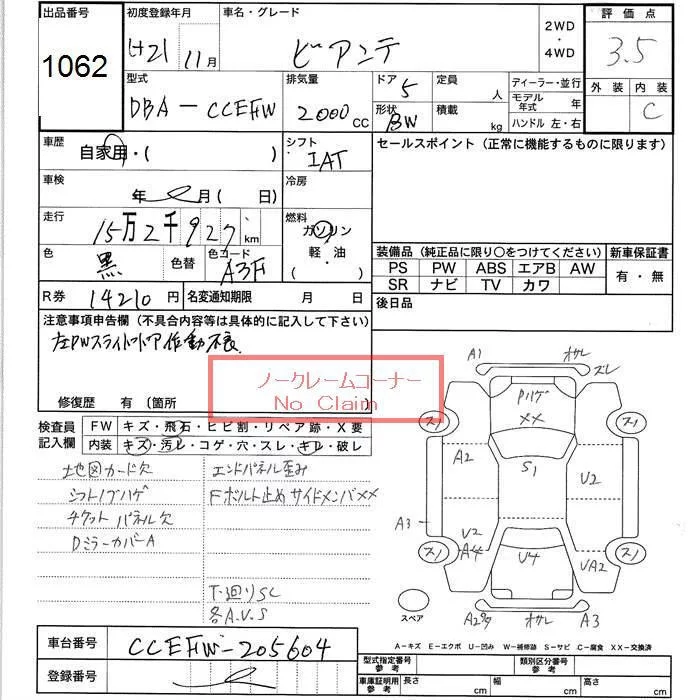 出品番号 初度登録年月 車名・グレード 2WD ・ 4WD 評価点
1062 H21 11月 ビアンテ 3.5
型式 排気量 ドア 5 定員 人 ディーラー・並行 外装 内装
DBA-CCEFW 2000cc 形状 BW 積載 kg モデル年式 年 C
ハンドル 左・右
車歴 自家用・( ) シフト IAT セールスポイント(正常に機能するものに限ります)
車検 年 月( 日) 冷房
走行 15万2千927km 燃料 ガソリン 軽・油 ( )
色 黒 色替 色コード A3F 装備品(純正品に限り〇をつけてください) 新車保証書
PS PW ABS エアB AW 有・無
SR ナビ TV カワ
R券 14210円 名変通知期限 月 日 後日品
注意事項申告欄(不具合内容等は具体的に記入して下さい)
左PWスライドドア作動不良
ノークレームコーナー
No Claim
修復歴 有(箇所
検査員記入欄 FW キズ・飛石・ヒビ割・リペア跡・X要
内装 キズ・汚レ・コゲ・穴・スレ・キレ・破レ
地図カード欠 エンドパネル歪み
シフトノブハゲ Fボルト止めサイドメンバXX
チケットパネル欠
DミラーカバーA
下廻りSC
各A.U.S
A1 オサレ スレ
Pハゲ
XX
スノ スノ
A2 S1 U2
A3 U2 A4 U4 UA2
スノ スノ
スペア A2 オサレ A3
A-キズ E-エクボ U-凹み W-補修跡 S-サビ C-腐食 XX-交換済
車台番号 CCEFW-205604
登録番号
型式指定番号 参考 類別区分番号 参考
車庫証明用 参考 長さ cm 幅 cm 高さ cm